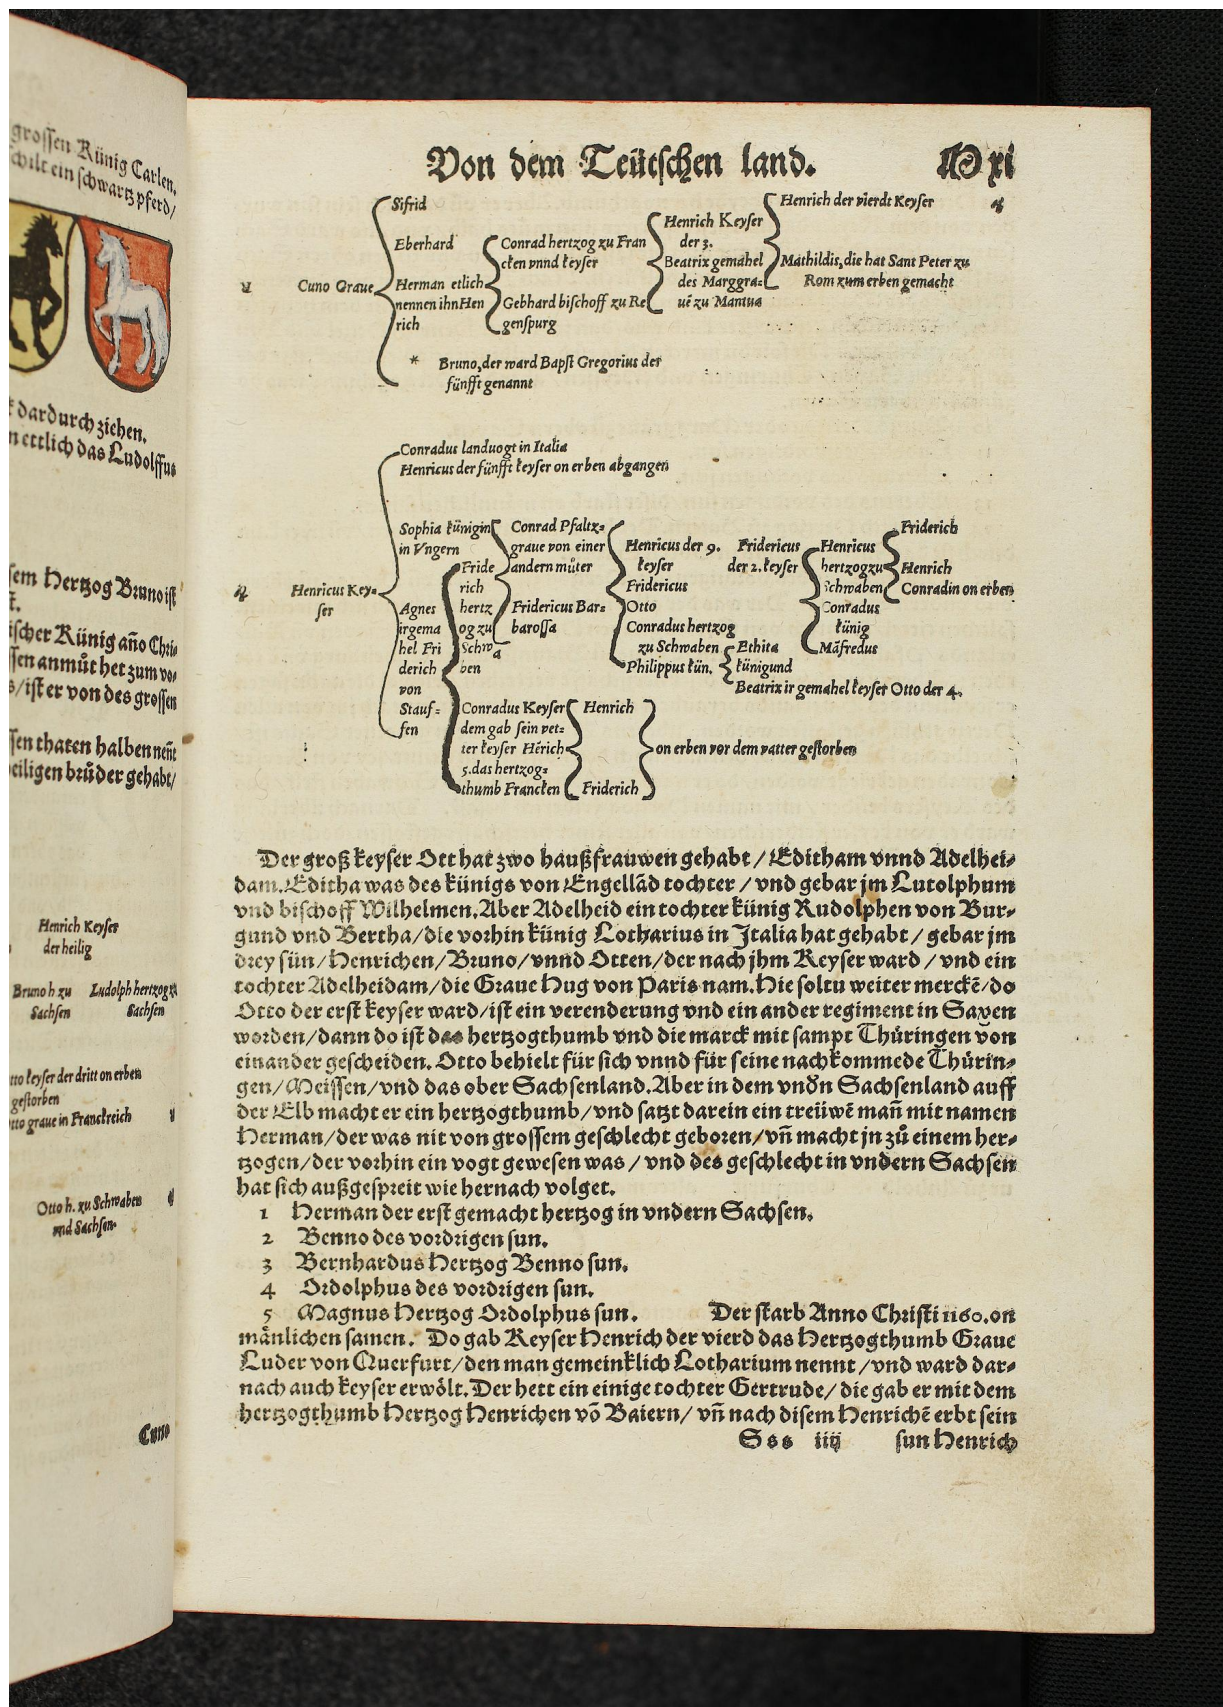 grossen Künig Carlen,
schilt ein schwartz pferd/
dardurch ziehen.
ettlich das Ludolffus
sem Hertzog Bruno ist
ischer Künig año Chri-
sen anmůt het zum vo-
/ist er von des grossen
sen thaten halben neñt
eiligen brůder gehabt/
Henrich Keyser
der heilig
Bruno h. zu Ludolph hertzog zů
Sachsen Sachsen
tto keyser der dritt on erben
gestorben
tto graue in Franckreich
Otto h. zu Schwaben
vnd Sachsen.
Cuno
Von dem Teütschen land.
xi
Sifrid
Eberhard
Cuno Graue
Herman etlich
nennen ihn Hen
rich
* Bruno, der ward Bapst Gregorius der
fünfft genannt
Conrad hertzog zu Fran
cken vnnd keyser
Gebhard bischoff zu Re
genspurg
Henrich Keyser
der 3.
Beatrix gemahel
des Marggra-
uẽ zu Mantua
Henrich der vierdt Keyser
Mathildis, die hat Sant Peter zu
Rom zum erben gemacht
Henricus Key-
ser
Conradus landuogt in Italia
Henricus der fünfft keyser on erben abgangen
Sophia künigin
in Vngern
Agnes
irgema
hel Fri
derich
von
Stauf-
fen
Fride
rich
hertz
og zu
Schwa
ben
Conrad Pfaltz-
graue von einer
andern můter
Fridericus Bar-
barossa
Henricus der 9.
keyser
Fridericus
Otto
Conradus hertzog
zu Schwaben
Philippus kün.
Fridericus
der 2. keyser
Henricus
hertzog zu
Schwaben
Conradus
künig
Mãfredus
Friderich
Henrich
Conradin on erben
Ethita
künigund
Beatrix ir gemahel keyser Otto der 4.
Conradus Keyser
dem gab sein vet-
ter keyser Hẽrich
5. das hertzog-
thumb Francken
Henrich
Friderich
on erben vor dem vatter gestorben
Der groß keyser Ott hat zwo haußfrauwen gehabt / Editham vnnd Adelhei-
dam. Editha was des künigs von Engellãd tochter / vnd gebar jm Lutolphum
vnd bischoff Wilhelmen. Aber Adelheid ein tochter künig Rudolphen von Bur-
gund vnd Bertha/die vorhin künig Lotharius in Italia hat gehabt / gebar jm
drey sün/Henrichen/Bruno/vnnd Otten/der nach jhm Keyser ward / vnd ein
tochter Adelheidam/die Graue Hug von Paris nam. Hie soltu weiter merckẽ/do
Otto der erst keyser ward/ist ein verenderung vnd ein ander regiment in Saxen
worden/dann do ist das hertzogthumb vnd die marck mit sampt Thüringen von
einander gescheiden. Otto behielt für sich vnnd für seine nachkommede Thürin-
gen/Meissen/vnd das ober Sachsenland. Aber in dem vndñ Sachsenland auff
der Elb macht er ein hertzogthumb/vnd satzt darein ein treüwẽ mañ mit namen
Herman/der was nit von grossem geschlecht geboren/vñ macht jn zů einem her-
tzogen/der vorhin ein vogt gewesen was / vnd des geschlecht in vndern Sachsen
hat sich außgespreit wie hernach volget.
1 Herman der erst gemacht hertzog in vndern Sachsen.
2 Benno des vordrigen sun.
3 Bernhardus Hertzog Benno sun.
4 Ordolphus des vordrigen sun.
5 Magnus Hertzog Ordolphus sun. Der starb Anno Christi 1160. on
mänlichen samen. Do gab Keyser Henrich der vierd das Hertzogthumb Graue
Luder von Querfurt/den man gemeinklich Lotharium nennt /vnd ward dar-
nach auch keyser erwölt. Der hett ein einige tochter Gertrude/ die gab er mit dem
hertzogthumb Hertzog Henrichen võ Baiern/ vñ nach disem Henrichẽ erbt sein
Sss iiij sun Henrich